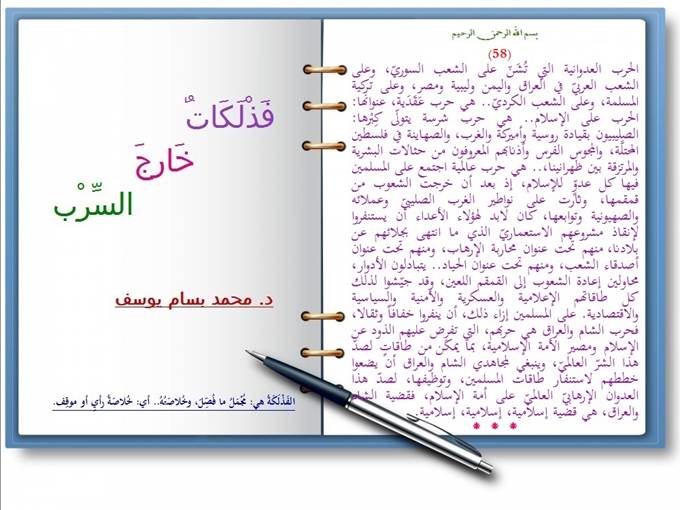 بسم الله الرحمن الرحيم
(58)
الحرب العدوانية التي تُشَنّ على الشعب السوريّ، وعلى
الشعب العربيّ في العراق واليمن وليبية ومصر، وعلى تركية
المسلمة، وعلى الشعب الكرديّ.. هي حرب عَقَدية، عنوانُها:
الحرب على الإسلام.. هي حرب شرسة يتولّى كِبْرَها:
الصليبيون بقيادة روسية وأميركة والغرب، والصهاينة في فلسطين
المحتلّة، والمجوس الفرس وأذنابهم المعروفون من حثالات البشرية
والمرتزقة بين ظهرانينا،.. هي حرب عالمية اجتمع على المسلمين
فيها كل عدوّ للإسلام، إذ بعد أن خرجت الشعوب من
قمقمها، وثارت على نواطير الغرب الصليبيّ وعملائه
والصهيونية وتوابعها، كان لابد لهؤلاء الأعداء أن يستنفروا
لإنقاذ مشروعهم الاستعماريّ الذي ما انتهى بجلائهم عن
بلادنا، منهم تحت عنوان محاربة الإرهاب، ومنهم تحت عنوان
أصدقاء الشعب، ومنهم تحت عنوان الحياد.. يتبادلون الأدوار،
محاولين إعادة الشعوب إلى القمقم اللعين، وقد جيّشوا لذلك
كل طاقاتهم الإعلامية والعسكرية والأمنية والسياسية
والاقتصادية. على المسلمين إزاء ذلك، أن ينفروا خفافاً وثقالا،
فحرب الشام والعراق هي حربهم، التي تفرض عليهم الذود عن
الإسلام ومصير الأمة الإسلامية، بما يمكّن من طاقاتٍ لصدّ
هذا الشرّ العالميّ، وينبغي لمجاهدي الشام والعراق أن يضعوا
خططهم لاستنفار طاقات المسلمين، وتوظيفها، لصدّ هذا
العدوان الإرهابيّ العالميّ على أمة الإسلام، فقضية الشام
والعراق، هي قضية إسلامية، إسلامية، إسلامية.
* * *
فَذْلَكَاتٌ
خَارجَ
السِّرْب
د. محمد بسام يوسف
الفَذْلَكَةُ هي: مُجْمَلُ ما فُصِّلَ، وخُلاصَتُهُ.. أي: خُلاصَةُ رأيٍ أو موقِف.